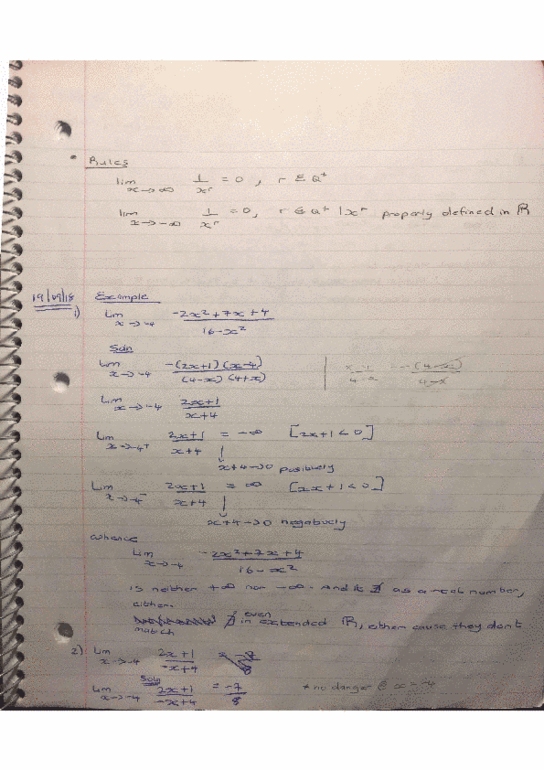 • Rules
lim x→∞ 1/xʳ = 0 , r ∈ Q⁺
lim x→-∞ 1/xʳ = 0, r ∈ Q⁺ | xʳ properly defined in ℝ
19/09/18 Example
1) Lim x→-4 -2x²+7x+4 / 16-x²
Soln
Lim x→-4 -(2x+1)(x-4) / (4-x)(4+x)
Lim x→-4 2x+1 / x+4
Lim x→-4⁺ 2x+1 / x+4 = -∞ [2x+1<0]
x+4→0 positively
Lim x→-4⁻ 2x+1 / x+4 = ∞ [2x+1<0]
x+4→0 negatively
whence
Lim x→-4 -2x²+7x+4 / 16-x²
is neither +∞ nor -∞. And it ∄ as a real number,
either.
∄ even in extended ℝ, either cause they don't
match
2) Lim x→-4 2x+1 / -x+4
Soln
Lim x→-4 2x+1 / -x+4 = -7/8 * no danger @ x=-4